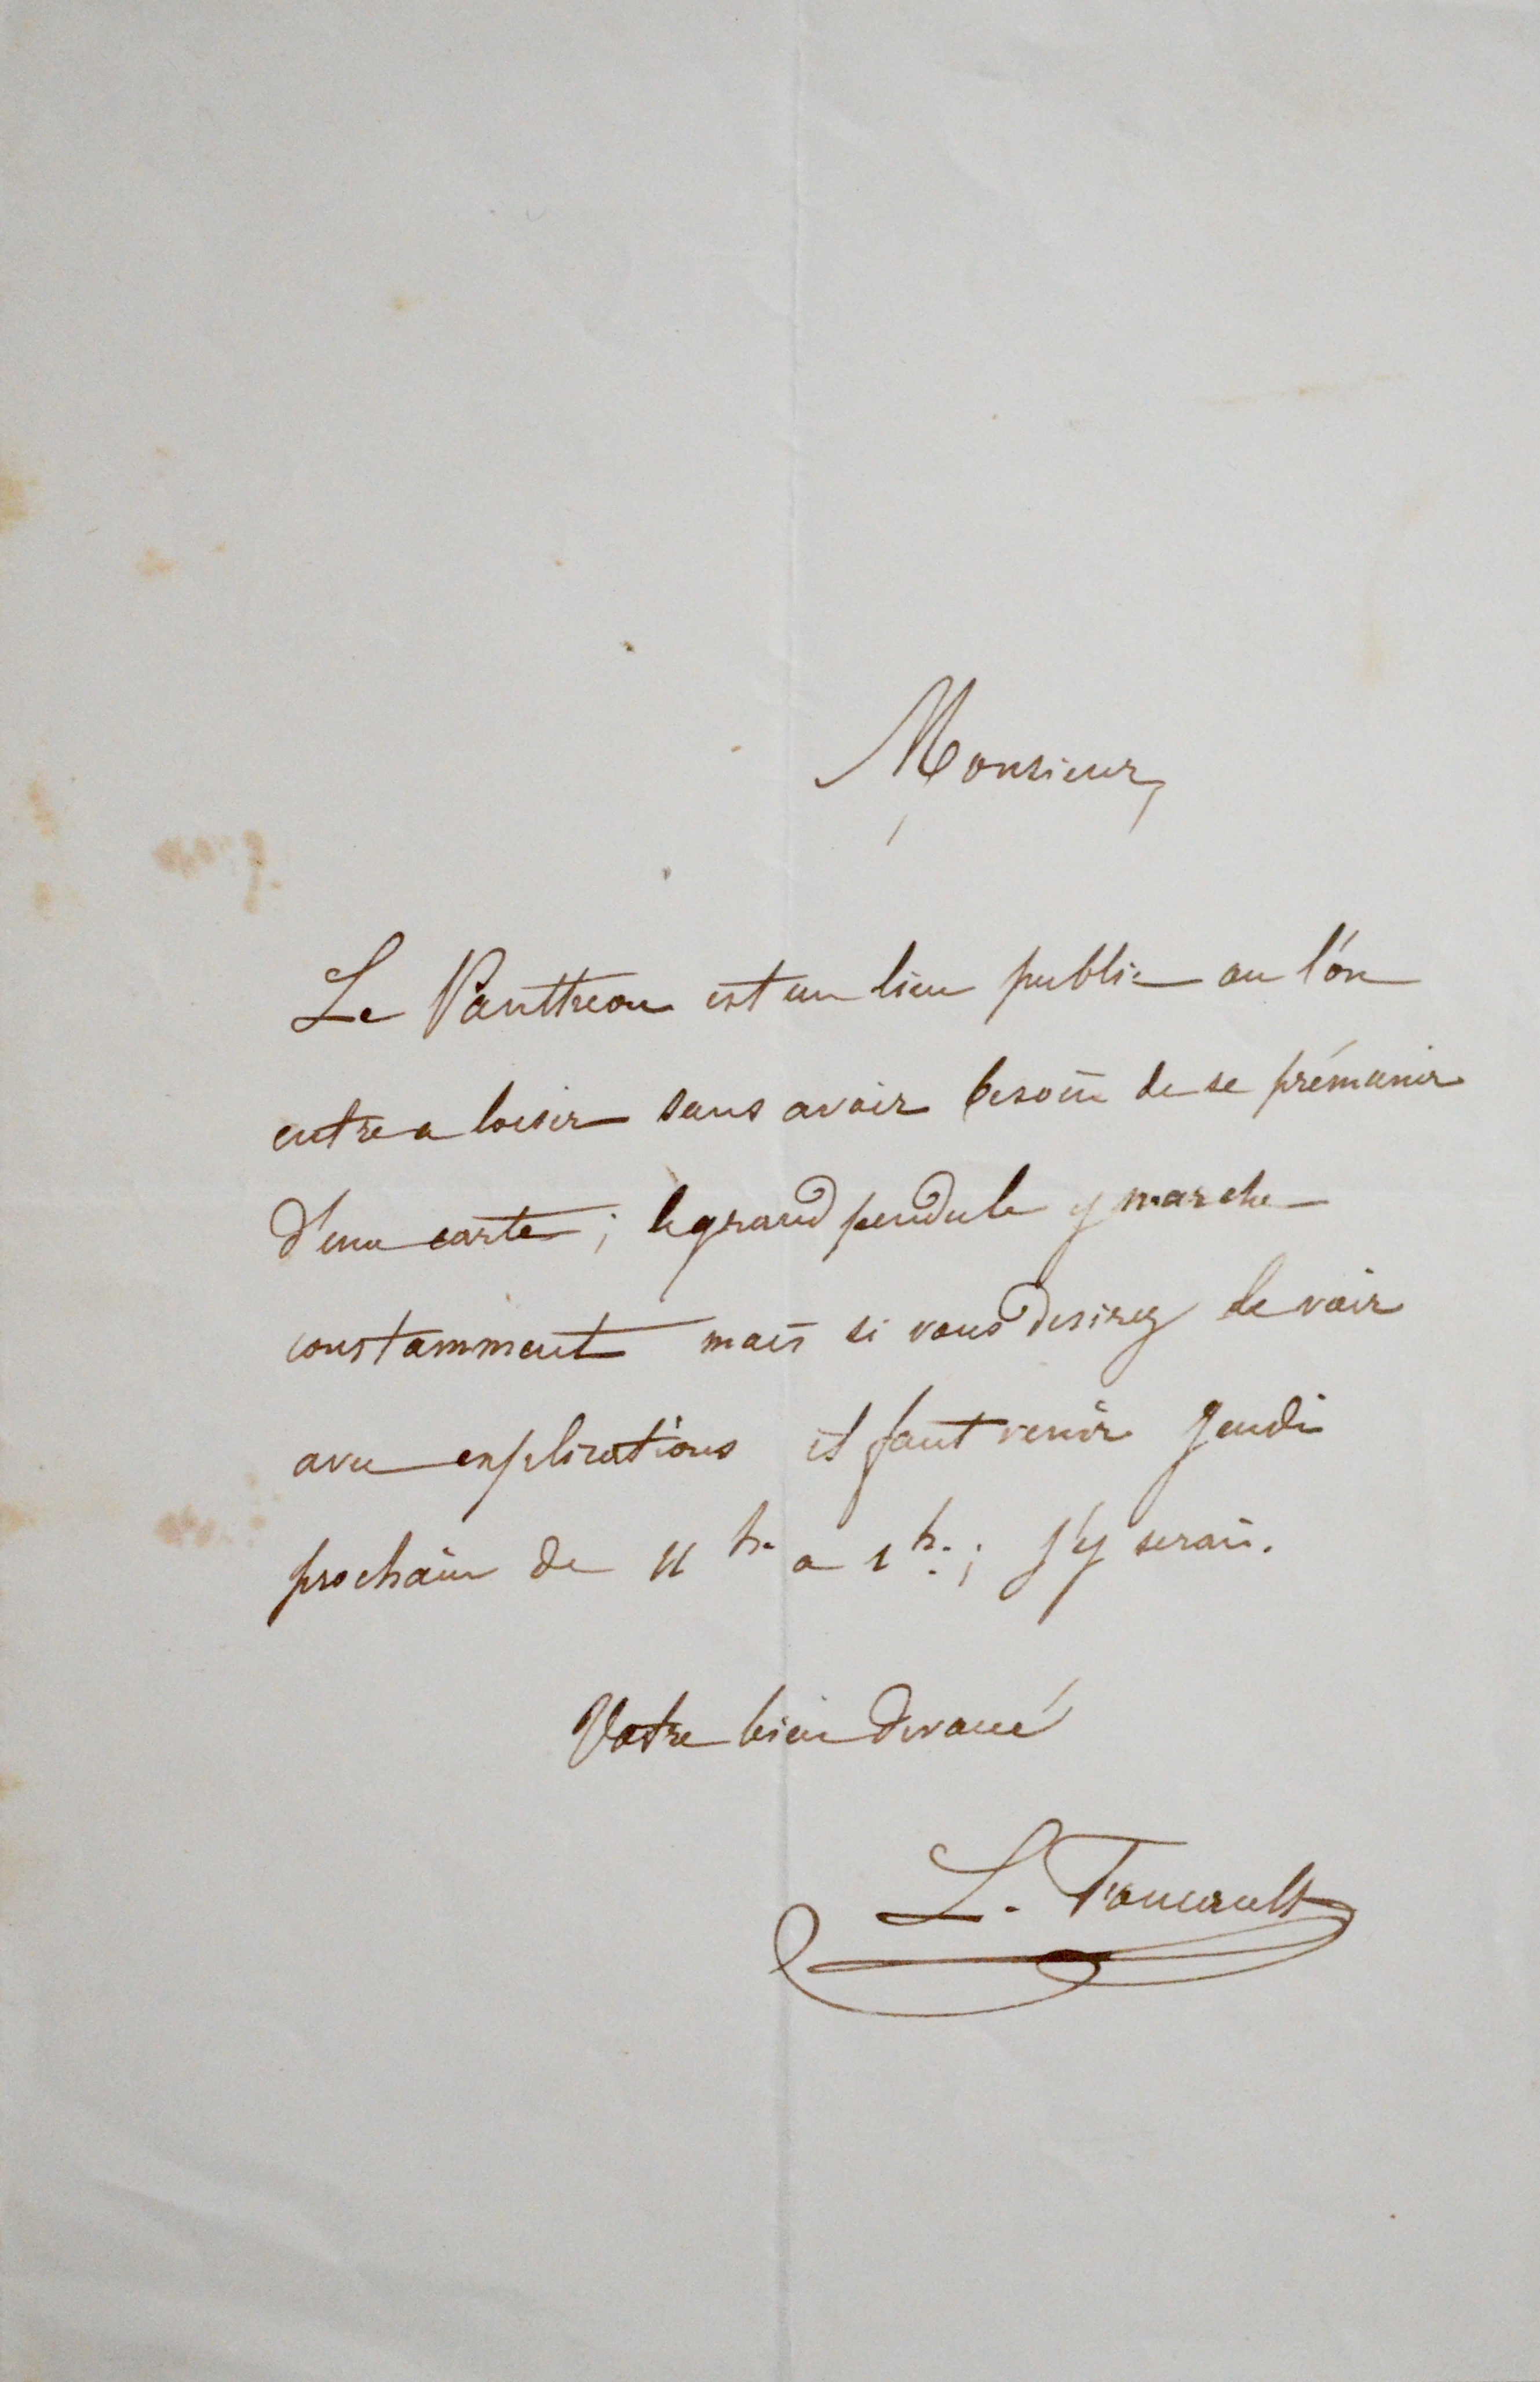 Monsieur,
Le Panthéon est un lieu public ou l'on
entre a loisir sans avoir besoin de se prémunir
d'une carte ; le grand pendule y marche
constamment mais si vous desirez le voir
avec explications il faut venir Jeudi
prochain de 11 h. a 1 h. ; j'y serai.
Votre bien devoué
L. Foucault